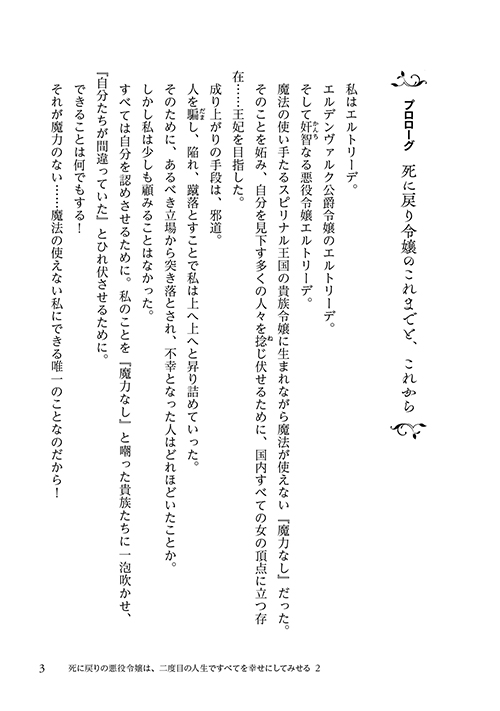 プロローグ 死に戻り令嬢のこれまでと、これから
私はエルトリーデ。
エルデンヴァルク公爵令嬢のエルトリーデ。
そして奸智なる悪役令嬢エルトリーデ。
魔法の使い手たるスピリナル王国の貴族令嬢に生まれながら魔法が使えない『魔力なし』だった。
そのことを妬み、自分を見下す多くの人々を捻じ伏せるために、国内すべての女の頂点に立つ存
在……王妃を目指した。
成り上がりの手段は、邪道。
人を騙し、陥れ、蹴落とすことで私は上へ上へと昇り詰めていった。
そのために、あるべき立場から突き落とされ、不幸となった人はどれほどいたことか。
しかし私は少しも顧みることはなかった。
すべては自分を認めさせるために。私のことを『魔力なし』と嘲った貴族たちに一泡吹かせ、
『自分たちが間違っていた』とひれ伏させるために。
できることは何でもする！
それが魔力のない……魔法の使えない私にできる唯一のことなのだから！
3 死に戻りの悪役令嬢は、二度目の人生ですべてを幸せにしてみせる 2